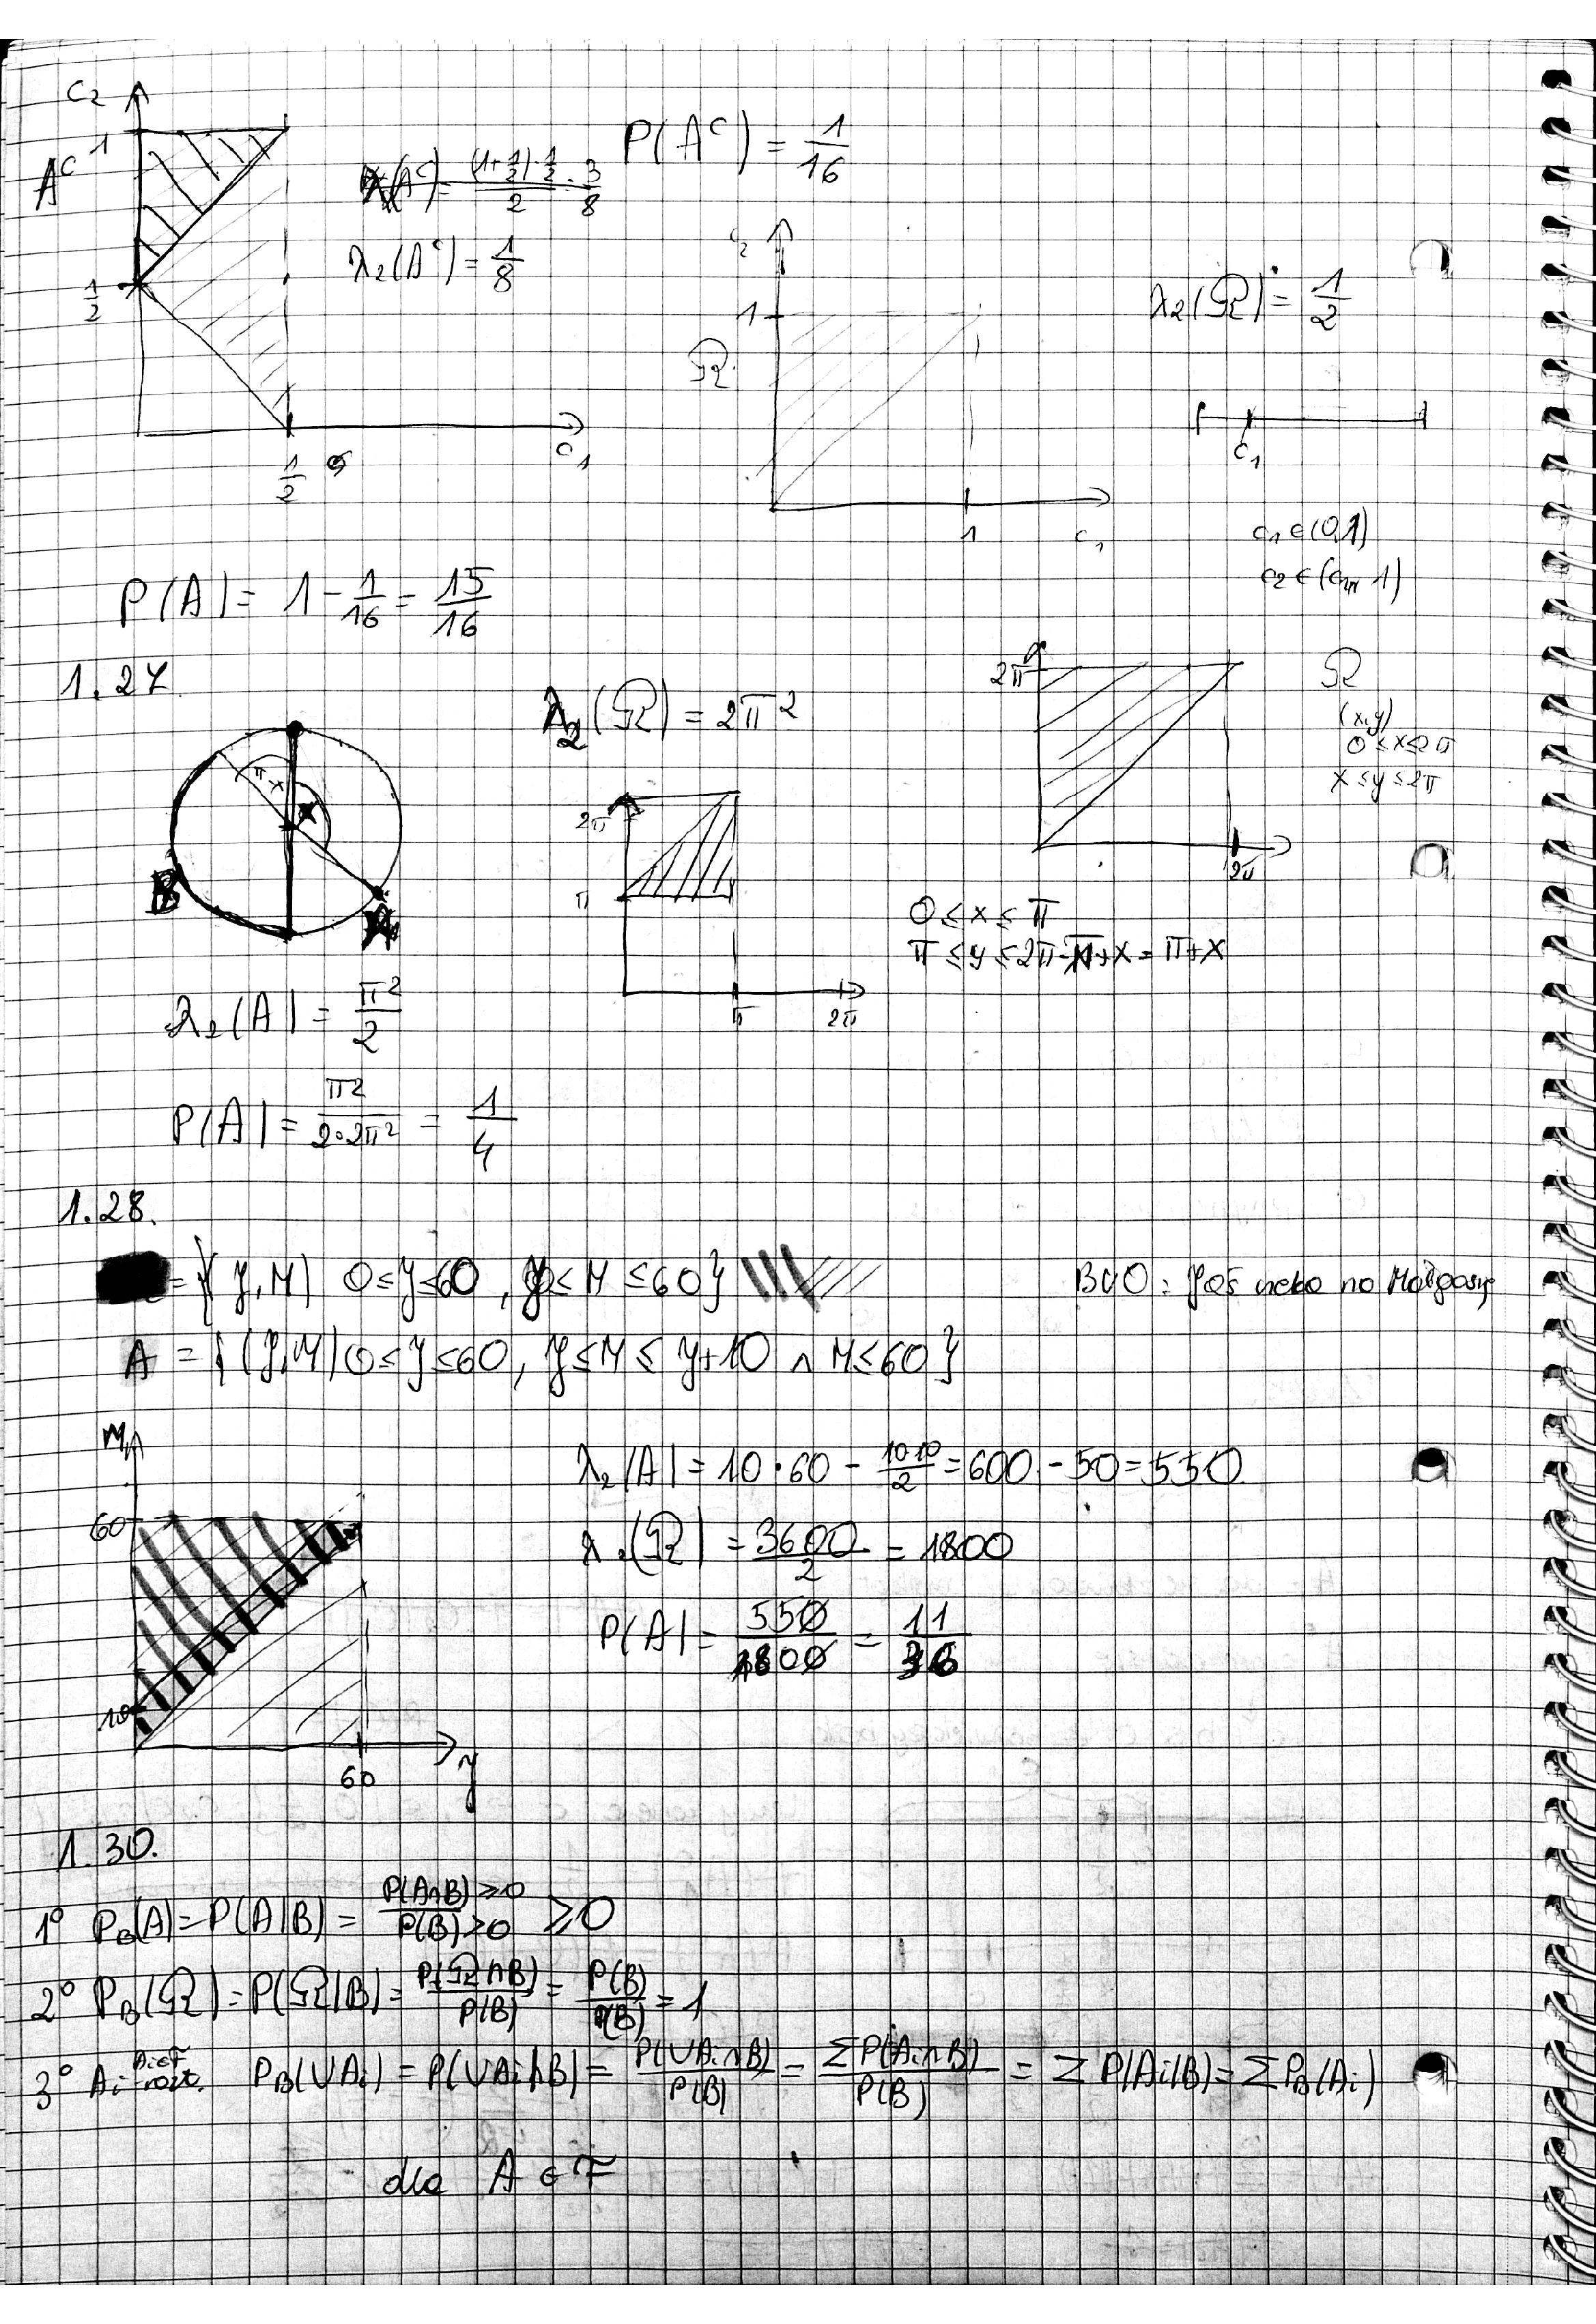 C₂
1
Aᶜ
1/2
1/2
C₁
λ₂(Aᶜ) = 1/8
P(Aᶜ) = 1/16
1
Ω
1
C₁
λ₂(Ω) = 1/2
C₁
c₁ ∈ (0,1)
P(A) = 1 - 1/16 = 15/16
1.27.
π-x
B
λ₂(Ω) = 2π²
2π
π
π
2π
2π
2π
Ω
(x,y)
0 ≤ x ≤ 2π
x ≤ y ≤ 2π
0 ≤ x ≤ π
π ≤ y ≤ 2π-π+x = π+x
λ₂(A) = π²/2
P(A) = π²/(2·2π²) = 1/4
1.28.
= {(y,M) 0 ≤ y ≤ 60, y ≤ M ≤ 60}
BUO:
A = {(y,M) 0 ≤ y ≤ 60, y ≤ M ≤ y+10 ∧ M ≤ 60}
M
60
10
60
y
λ₂(A) = 10·60 - 10·10/2 = 600 - 50 = 550
λ₂(Ω) = 3600/2 = 1800
P(A) = 550/1800 = 11/36
1.30.
1° P_B(A) = P(A|B) = P(A∩B) ≥0 / P(B) >0 ≥ 0
2° P_B(Ω) = P(Ω|B) = P(Ω∩B)/P(B) = P(B)/P(B) = 1
3° Aᵢ Aᵢ∈F rozł. P_B(∪Aᵢ) = P(∪Aᵢ|B) = P(∪Aᵢ∩B)/P(B) = ΣP(Aᵢ∩B)/P(B) = ΣP(Aᵢ|B) = ΣP_B(Aᵢ)
dla A ∈ F